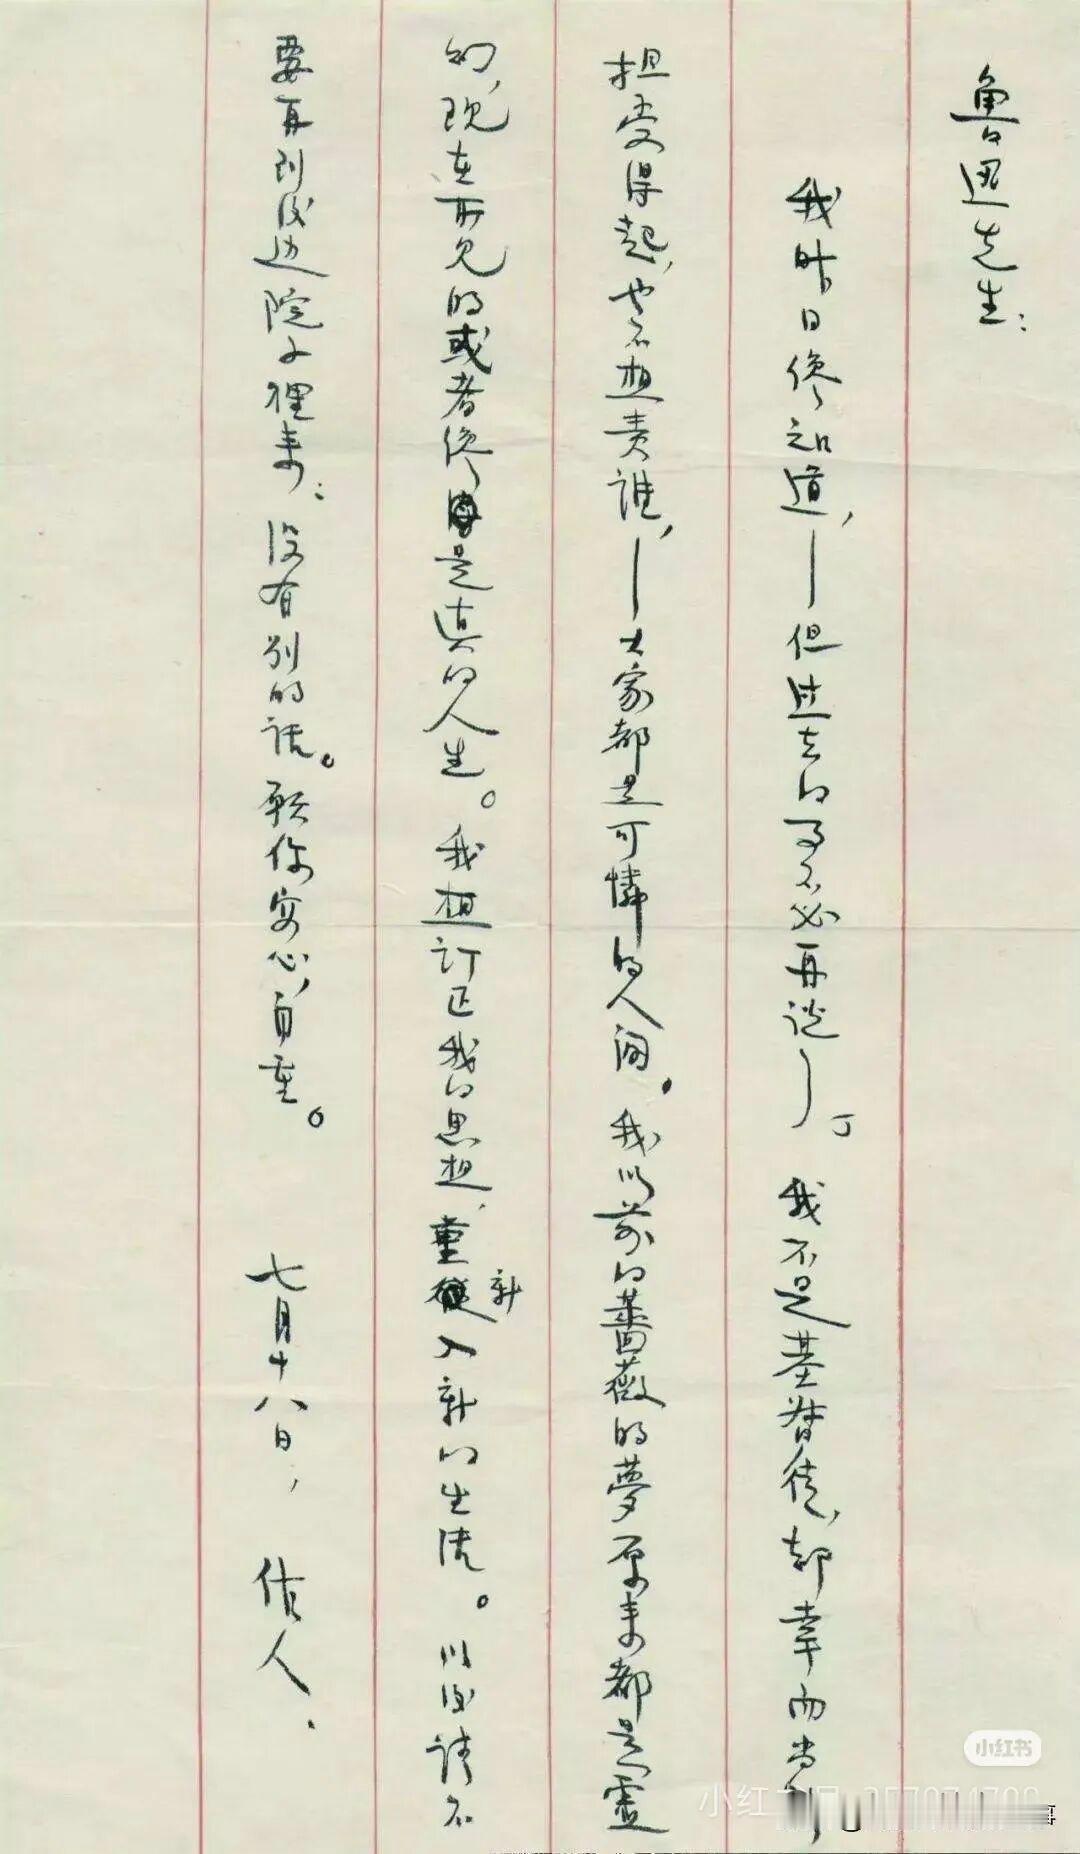 魯迅先生：
我昨日纔知道，——但过去的事不必再说——我不是基督徒，却幸而尚
担受得起，也不想责誰，——大家都是可憐的人间。我以前的薔薇的夢原来都是虚
幻，现在所见的或者纔是真的人生。我想订正我的思想，重新入新的生活。以後请不
要再到後边院子裡来，没有别的话。願你安心，自重。 七月十八日， 作人．
小红书